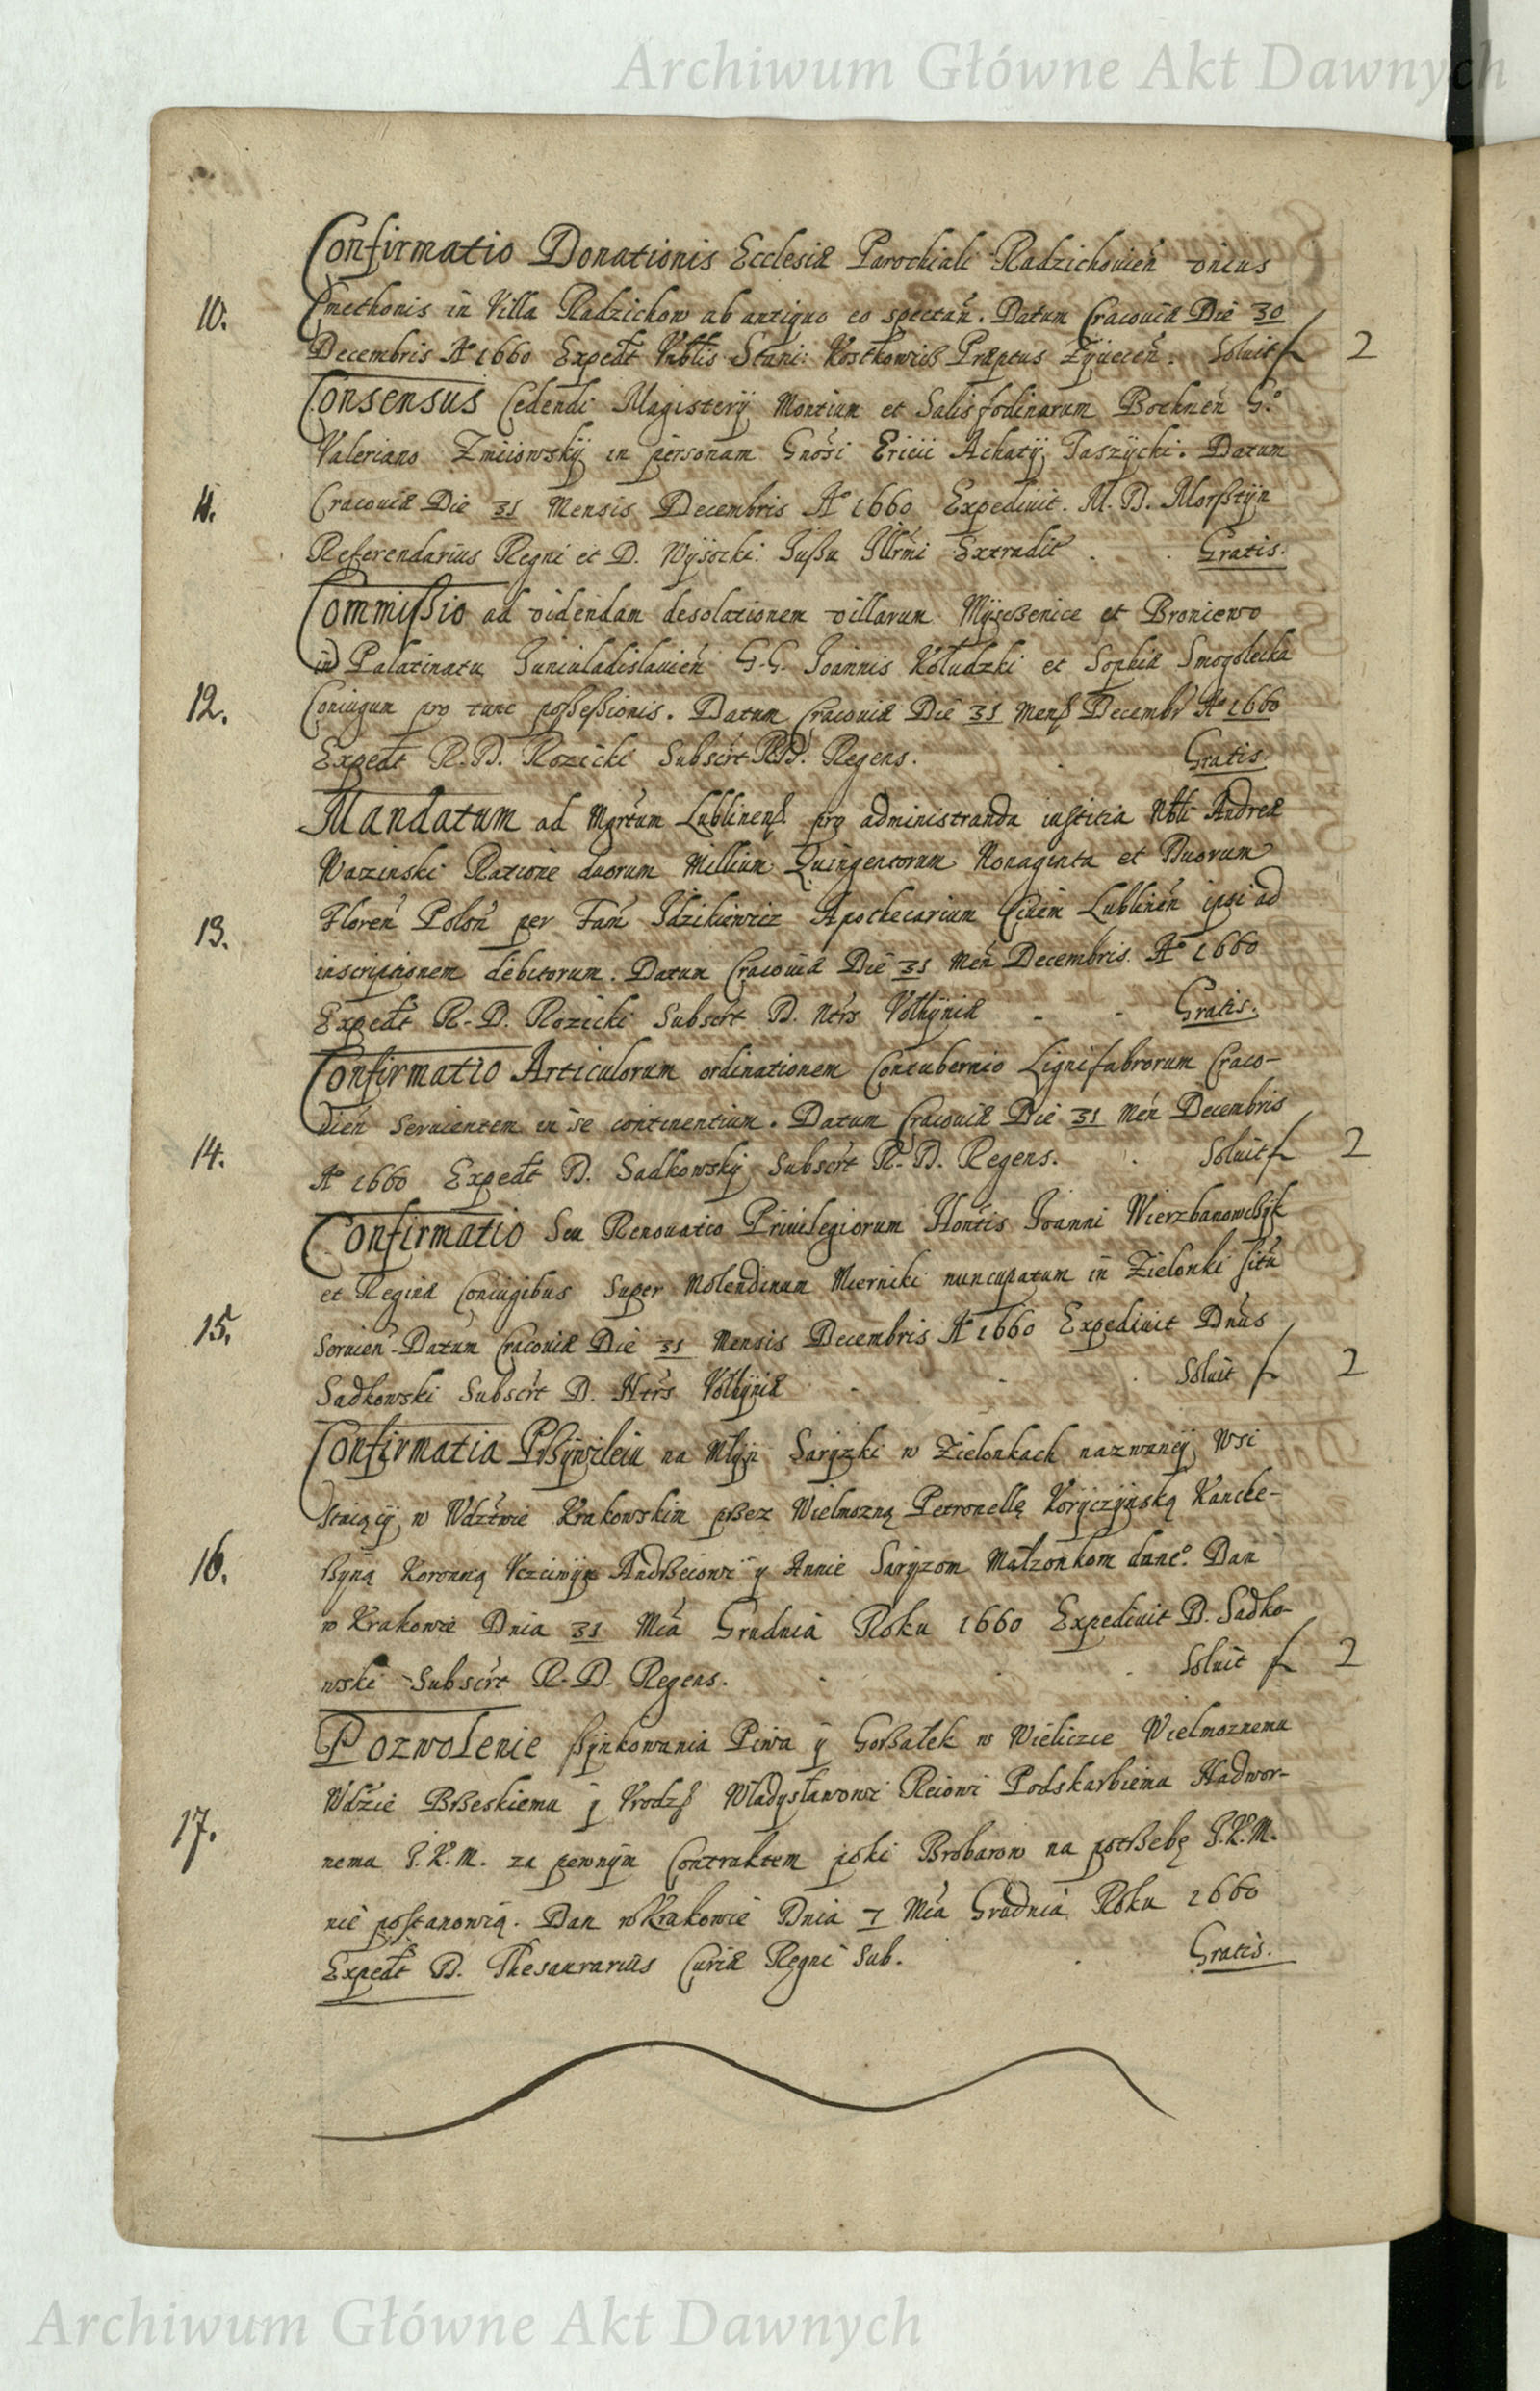 Archiwum Główne Akt Dawnych
Confirmatio Donationis Ecclesiæ Parochiali Radzichouień vnius
10. Cmethonis in Villa Radzichow ab antiquo eo spectań. Datum Cracouiæ Die 30
Decembris Aº 1660 Expedt Vnblis Stani: Kostkowicß Præptus Zÿueceń. Soluit f 2
Consensus Cedendi Magisterÿ Montium et Salisfodinarum Bochneń G.º
Valeriano Zmiiowskÿ in personam Gnosi Ericii Achatÿ Taszÿcki. Datum
11. Cracouiæ Die 31 Mensis Decembris Aº 1660 Expediuit. M. D. Morßtÿn
Referendarius Regni et D. Wÿsocki. Jußu Illrmi Extradit . . Gratis.
Commißio ad videndam desolationem villarum Mÿseßenice et Broniewo
in Palatinatu Juniuladislauień G.G. Joannis Kołudzki et Sophiæ Smogolecka
12. Coniugum pro tunc poßeßionis. Datum Cracouiæ Die 31 Menß Decembr Aº 1660
Expedt R. D. Rozicki Subscrt R.D. Regens. . Gratis.
Mandatum ad Mgrtum Lublinenß pro administranda iustitia Nbli Andreæ
Wazinski Ratione duorum Millium Quingentorum Nonaginta et Duorum
13. Floreń Poloń per Fam Idzikiewicz Apothecarium Ciuem Lublineń ipsi ad
inscriptionem debitorum. Datum Cracouiæ Die 31 Meń Decembris. Aº 1660
Expedt R. D. Rozicki Subscrt D. Ntrs Volhÿniæ - - Gratis.
Confirmatio Articulorum ordinationem Contubernio Lignifabrorum Craco-
vień seruientem in se continentium. Datum Cracouiæ Die 31 Meń Decembris
14. Aº 1660 Expedt D. Sadkowskÿ Subscrt R. D. Regens. . Soluit f 2
Confirmatio Seu Renouatio Priuilegiorum Hontis Joanni Wierzbanowcßÿk
et Reginæ Coniugibus Super Molendinum Mierniki nuncupatum in Zielonki situ
15. Seruień. Datum Cracouiæ Die 31 Mensis Decembris Aº 1660 Expediuit Dnus
Sadkowski Subscrt D. Ntrs Volhÿniæ . . . Soluit f 2
Confirmatia Prßÿwileiu na Młÿn Sarÿzki w Zielonkach nazwaneÿ Wsi
Stoiącÿ w Wdztwie Krakowskim przez Wielmozną Petronellę Korÿczÿnską Kancle-
16. rßÿną Koronną Vczciwÿm Andrßeiowi ÿ Annie Sarÿzom Małzonkom dane.º Dan
w Krakowie Dnia 31 Mca Grudnia Roku 1660 Expediuit D. Sadko-
wski Subscrt R. D. Regens. . . . Soluit f 2
Pozwolenie ßÿnkowania Piwa ÿ Gorßałek w Wieliczce Wielmoznemu
Wdzie Brßeskiemu ÿ Vrodzß Władysławowi Reiowi Podskarbiemu Nadwor-
17. nemu J.K.M. za pewnÿm Contraktem poki Brobarow na potrßebę J.K.M.
nie postanowią. Dan w Krakowie Dnia 7 Mca Grudnia Roku 1660
Expedt D. Thesaurarius Curiæ Regni Sub. . Gratis.
Archiwum Główne Akt Dawnych